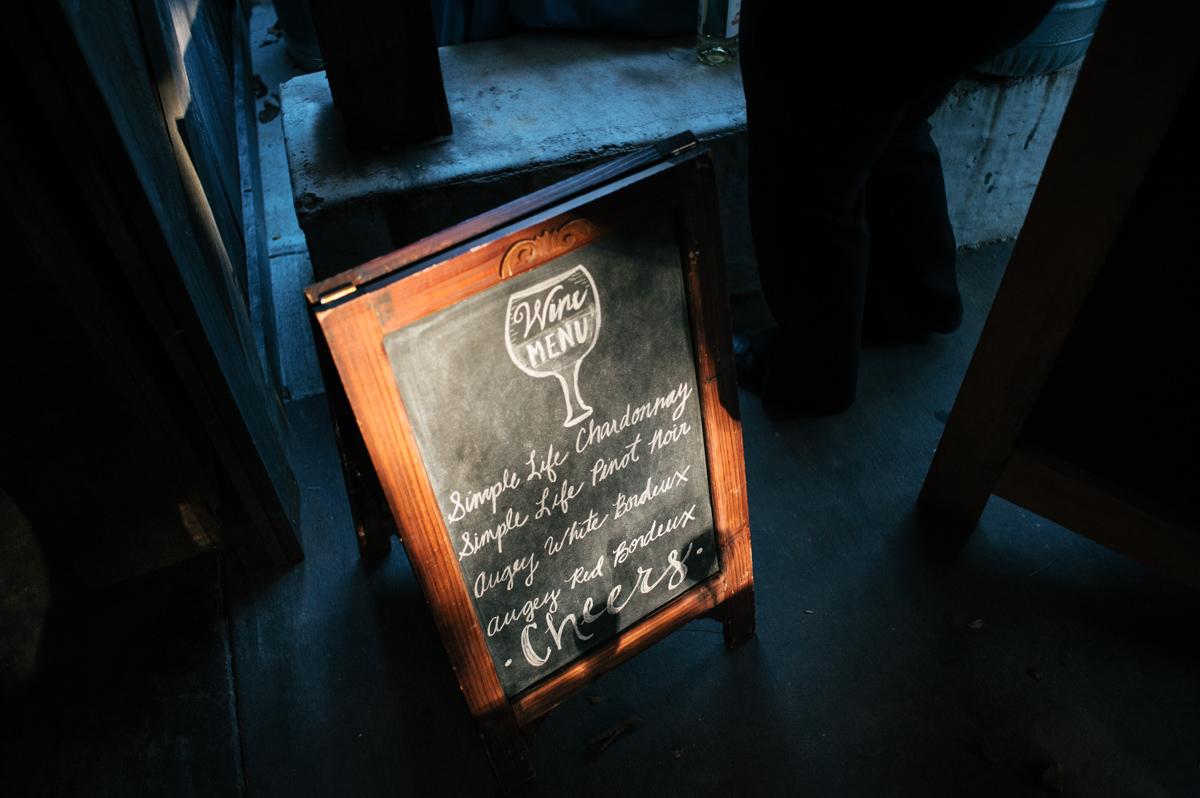 Wine
MENU
Simple Life Chardonnay
Simple Life Pinot Noir
Augey White Bordeux
Augey Red Bordeux
· Cheers ·